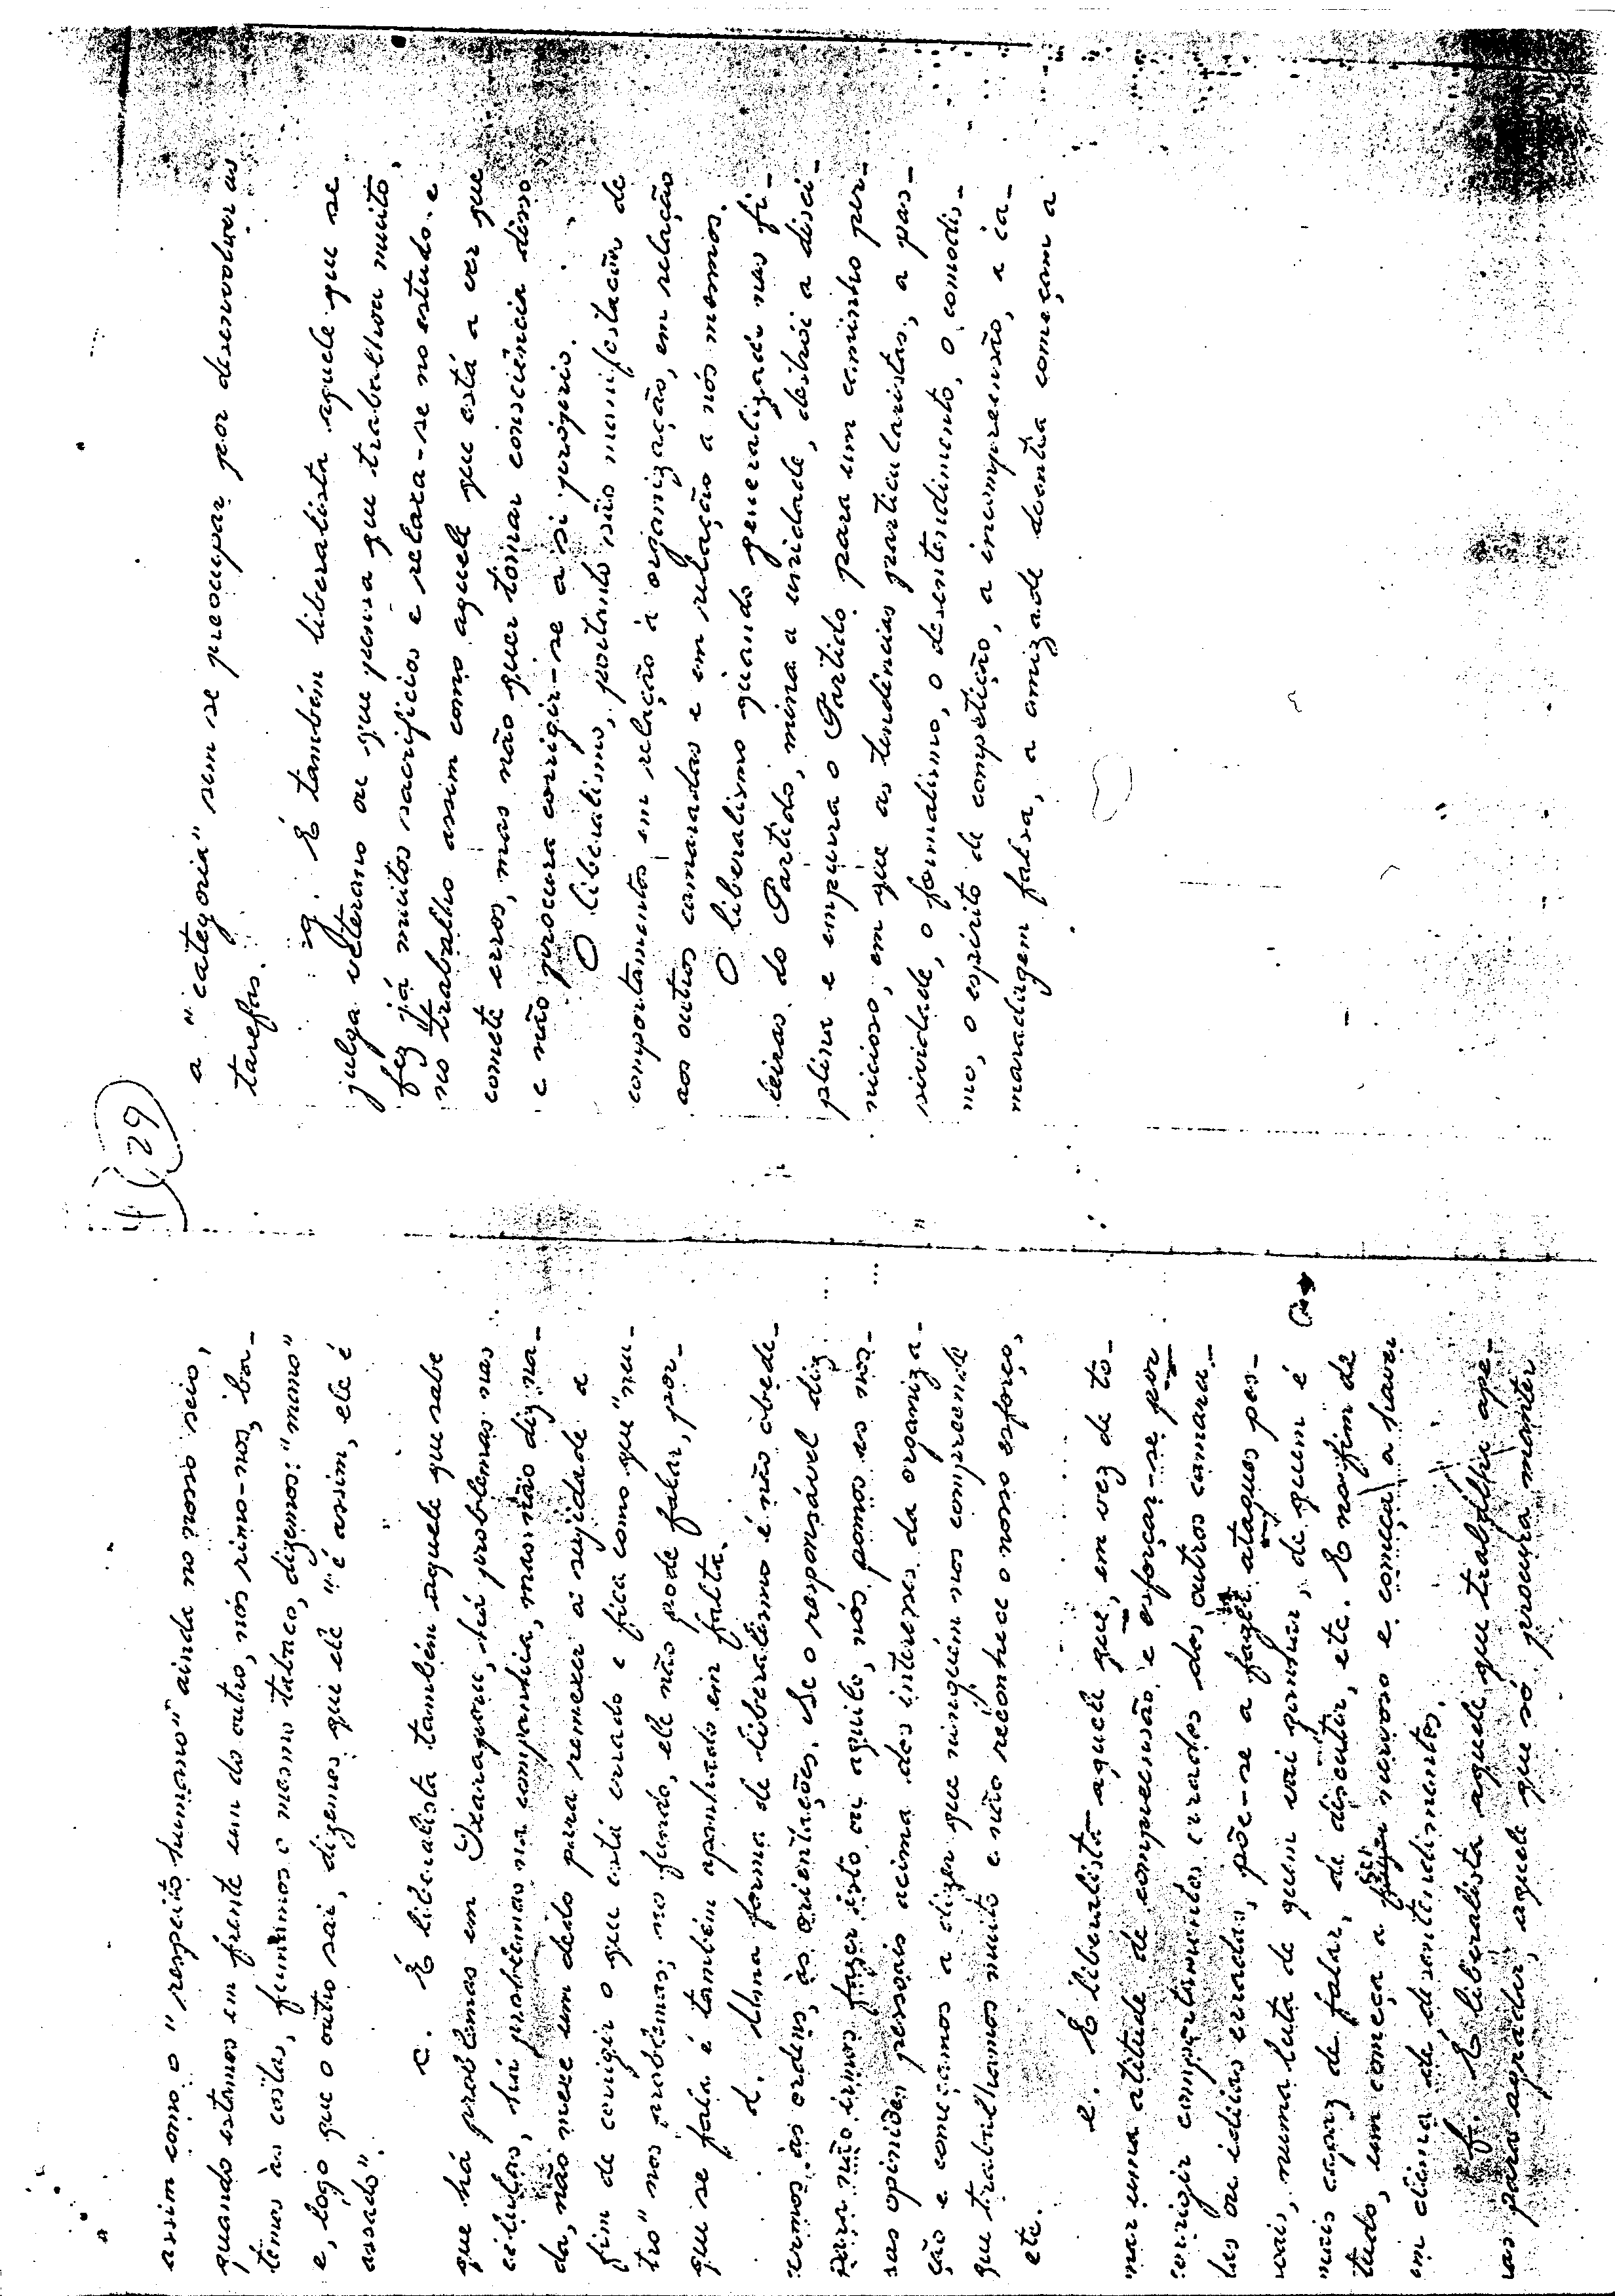 assim como o "respeito humano" ainda no nosso seio,
quando estamos em frente um do outro, nós rimo-nos, ba-
temos às costas, fumamos o mesmo tabaco, dizemos: "mano"
e, logo que o outro sai, dizemos que ele "é assim, ele é
assado".
c. É liberalista também aquele que sabe
que há problemas em , há problemas nas
células, há problemas na companhia, mas não diz na-
da, não mexe um dedo para remexer a sujidade a
fim de corrigir o que está errado e fica como que "neu-
tro" nos problemas; no fundo, ele não pode falar, por-
que se fala é também apanhado em falta.
d. Uma forma de liberalismo é não obede-
cermos às ordens, às orientações. Se o responsável diz
para nós irmos fazer isto ou aquilo, nós pomos as nos-
sas opiniões pessoais acima dos interesses da organiza-
ção e começamos a dizer que ninguém nos compreende
que trabalhamos muito e não reconhece o nosso esforço,
etc.
e. É liberalista aquele que, em vez de to-
mar uma atitude de compreensão e esforçar-se por
corrigir comportamentos errados dos outros camara-
das ou ideias erradas, põe-se a fazer ataques pes-
soais, numa luta de quem vai ganhar, de quem é
mais capaz de falar, de discutir, etc. E no fim de
tudo, um começa a ser nervoso e começa a haver
um clima de desentendimentos.
f. É liberalista aquele que trabalha ape-
nas para agradar, aquele que só procura manter
4 (29)
a "categoria" sem se preocupar por desenvolver as
tarefas.
g. É também liberalista aquele que se
julga veterano ou que pensa que trabalhou muito,
fez já muitos sacrifícios e relaxa-se no estudo e
no trabalho assim como aquele que está a ver que
comete erros, mas não quer tomar consciência disso
e não procura corrigir-se a si próprio.
O liberalismo, portanto são manifestações de
comportamentos em relação à organização, em relação
aos outros camaradas e em relação a nós mesmos.
O liberalismo quando generalizado nas fi-
leiras do Partido, mina a unidade, destrói a disci-
plina e empurra o Partido para um caminho per-
nicioso, em que as tendências particularistas, a pas-
sividade, o formalismo, o desentendimento, o comodis-
mo, o espírito de competição, a incompreensão, a ca-
maradagem falsa, a amizade doentia começam a